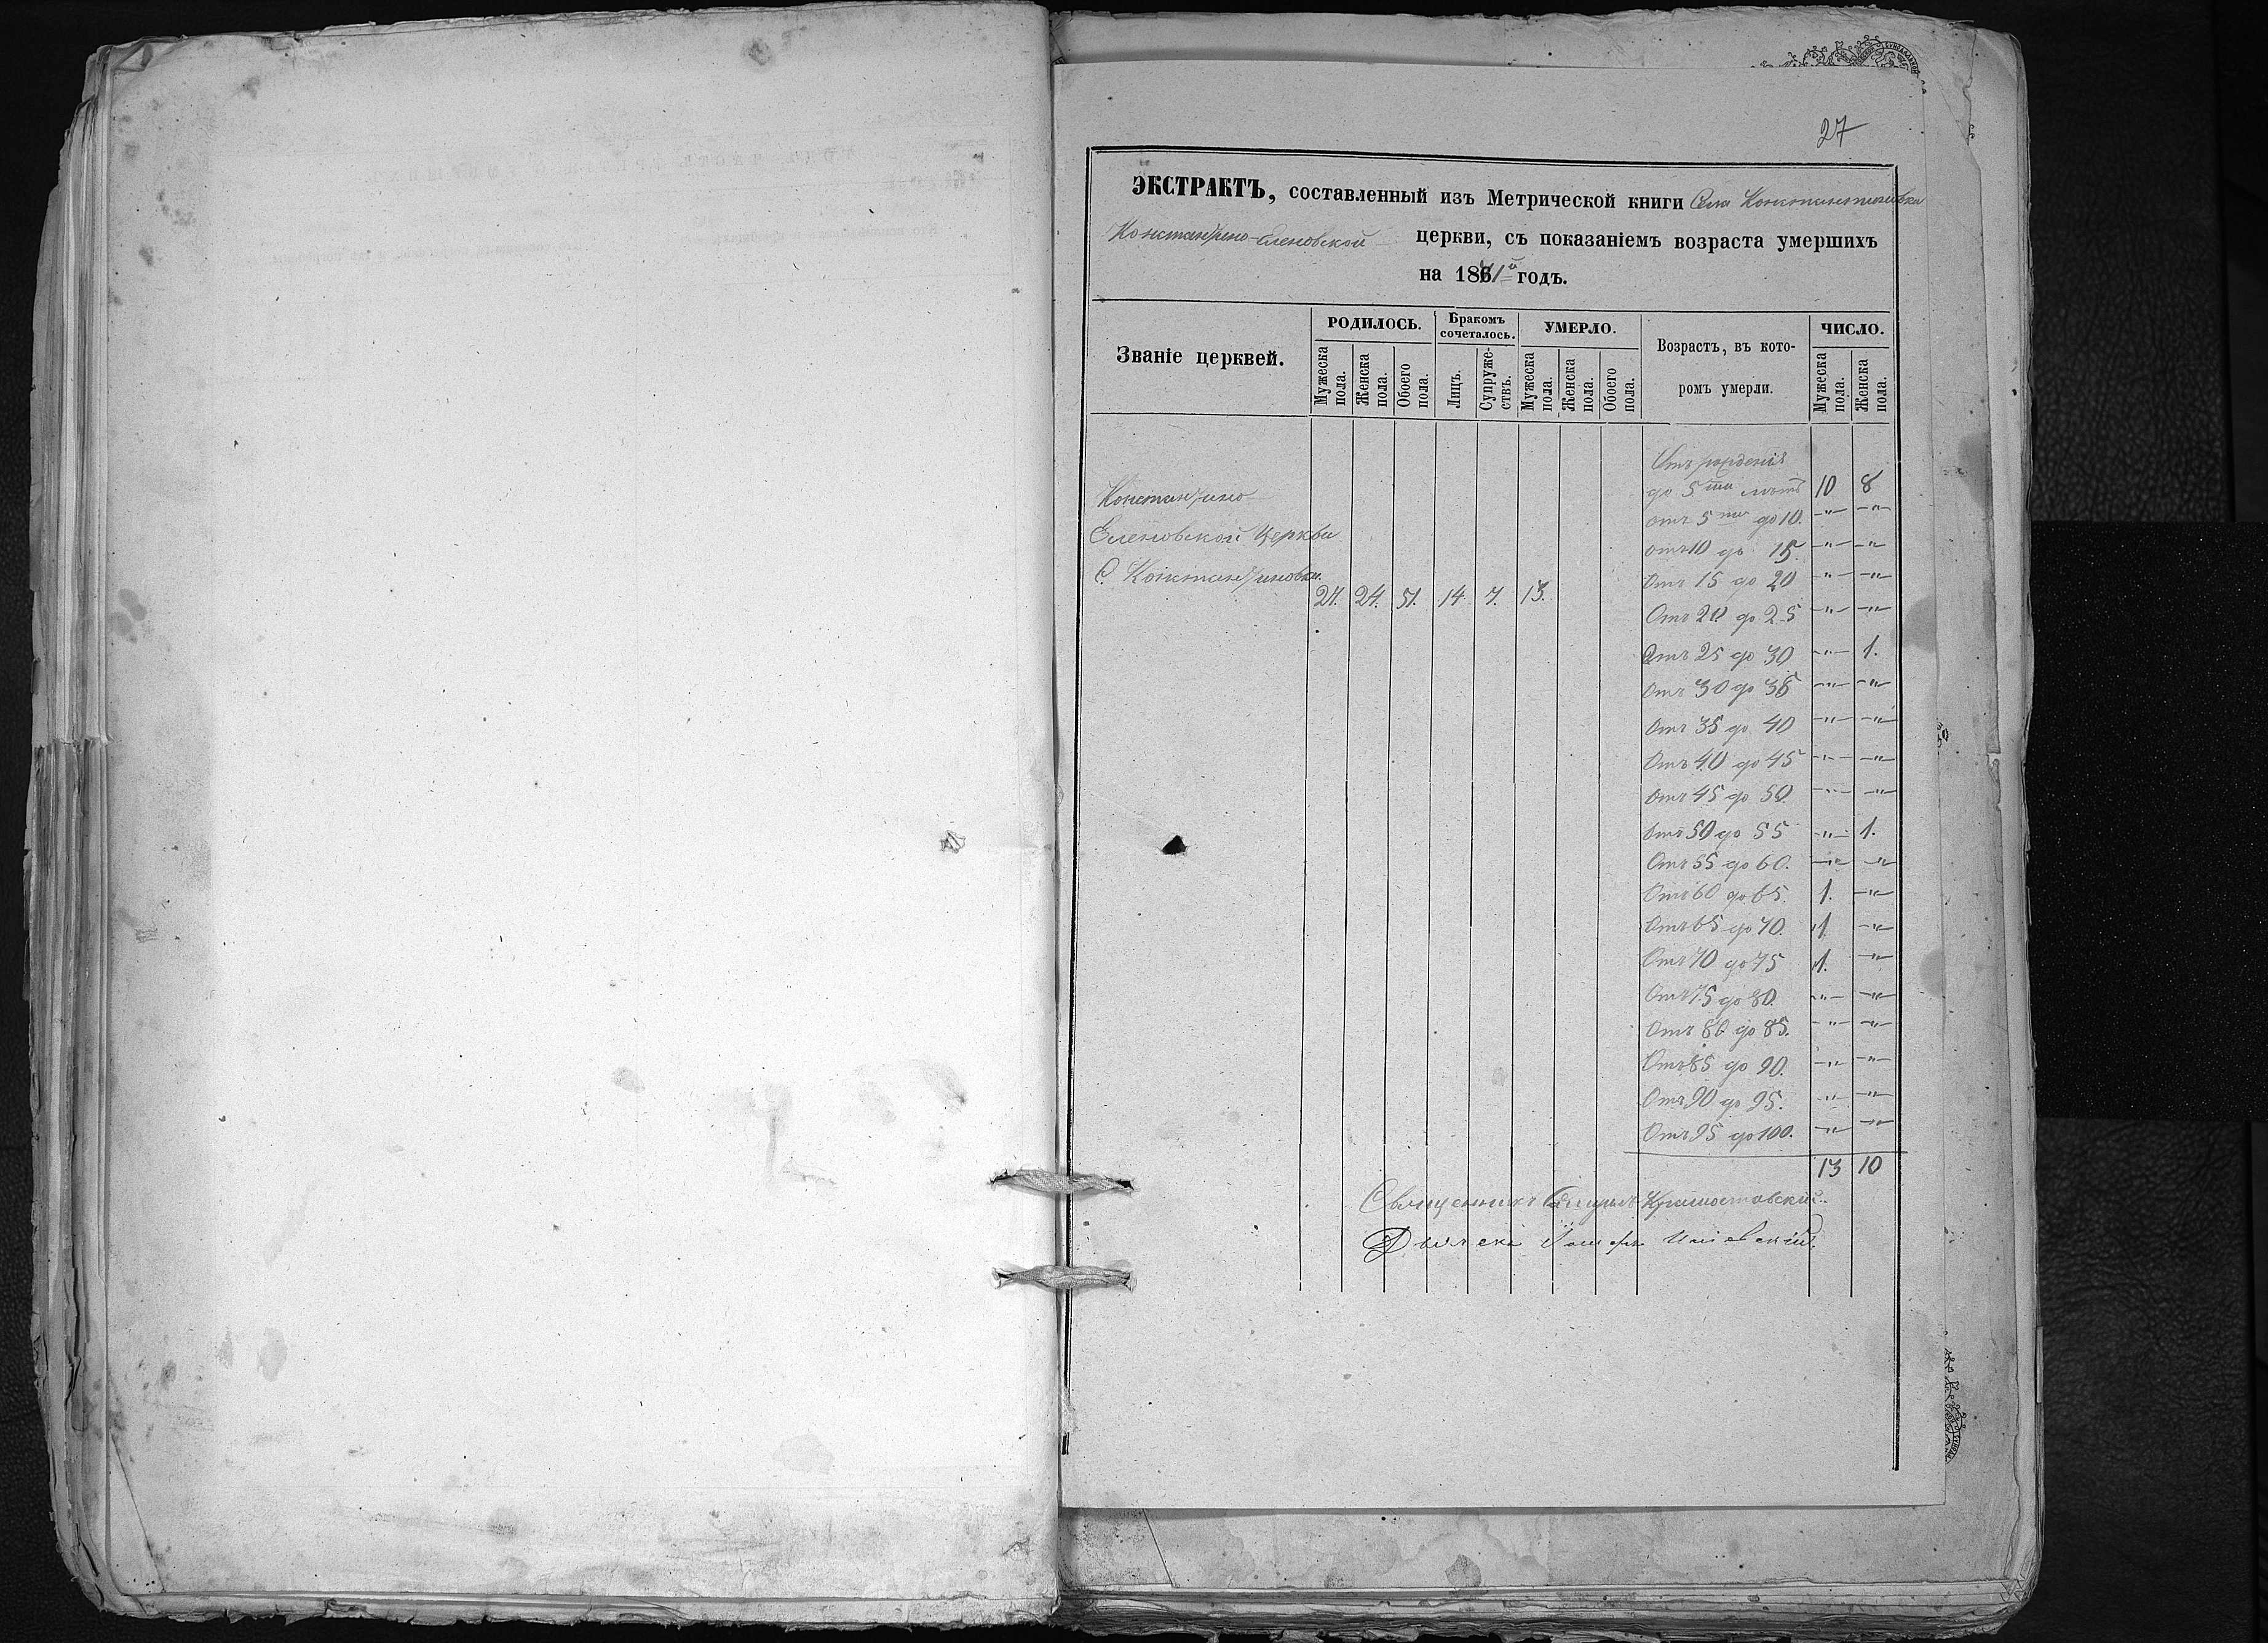 27
ЭКСТРАКТЪ, составленный изъ Метрической книги Села Константиновки
Константино-Еленовской церкви, съ показаніемъ возраста умершихъ
на 1871й годъ.
Званіе церквей.
РОДИЛОСЬ.
Бракомъ сочеталось.
УМЕРЛО.
Возрастъ, въ кото-
ромъ умерли.
ЧИСЛО.
Мужеска пола.
Женска пола.
Обоего пола.
Лицъ.
Супруже-
ствъ.
Мужеска пола.
Женска пола.
Обоего пола.
Мужеска пола.
Женска пола.
Константино
Еленовской Церкви
С. Константиновки.
27. 24. 51. 14 7. 13.
Отъ рожденія
до 5ти летъ 10 8
отъ 5ти до 10. -"- -"-
отъ 10 до 15. -"- -"-
Отъ 15 до 20 -"- -"-
Отъ 20 до 25 -"- -"-
Отъ 25 до 30 -"- 1.
Отъ 30 до 35 -"- -"-
Отъ 35 до 40 -"- -"-
Отъ 40 до 45 -"- -"-
Отъ 45 до 50. -"- -"-
Отъ 50 до 55 -"- 1.
Отъ 55 до 60. -"- -"-
Отъ 60 до 65. 1. -"-
Отъ 65 до 70. 1 -"-
Отъ 70 до 75 1. -"-
Отъ 75 до 80. -"- -"-
Отъ 80 до 85. -"- -"-
Отъ 85 до 90. -"- -"-
Отъ 90 до 95. -"- -"-
Отъ 95 до 100. -"- -"-
13 10
Священникъ